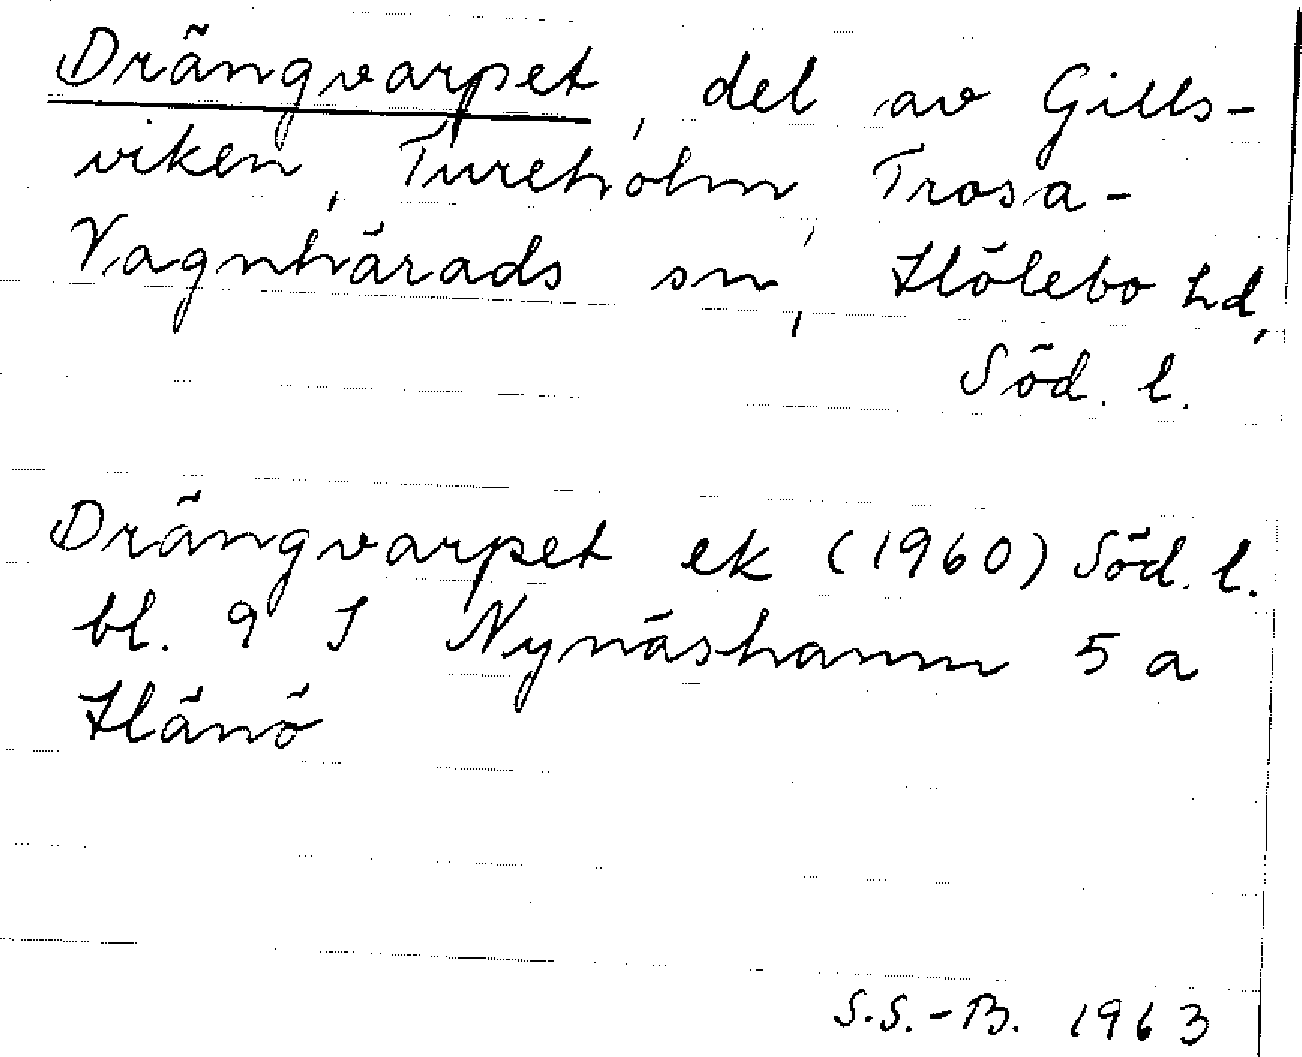 Drängvarpet, del av Gills-
viken, Tureholm, Trosa-
Vagnhärads sn, Hölebo hd,
Söd. l.
Drängvarpet ek (1960) Söd. l.
bl. 9 I Nynäshamn 5 a
Hånö
S.S.-B. 1963